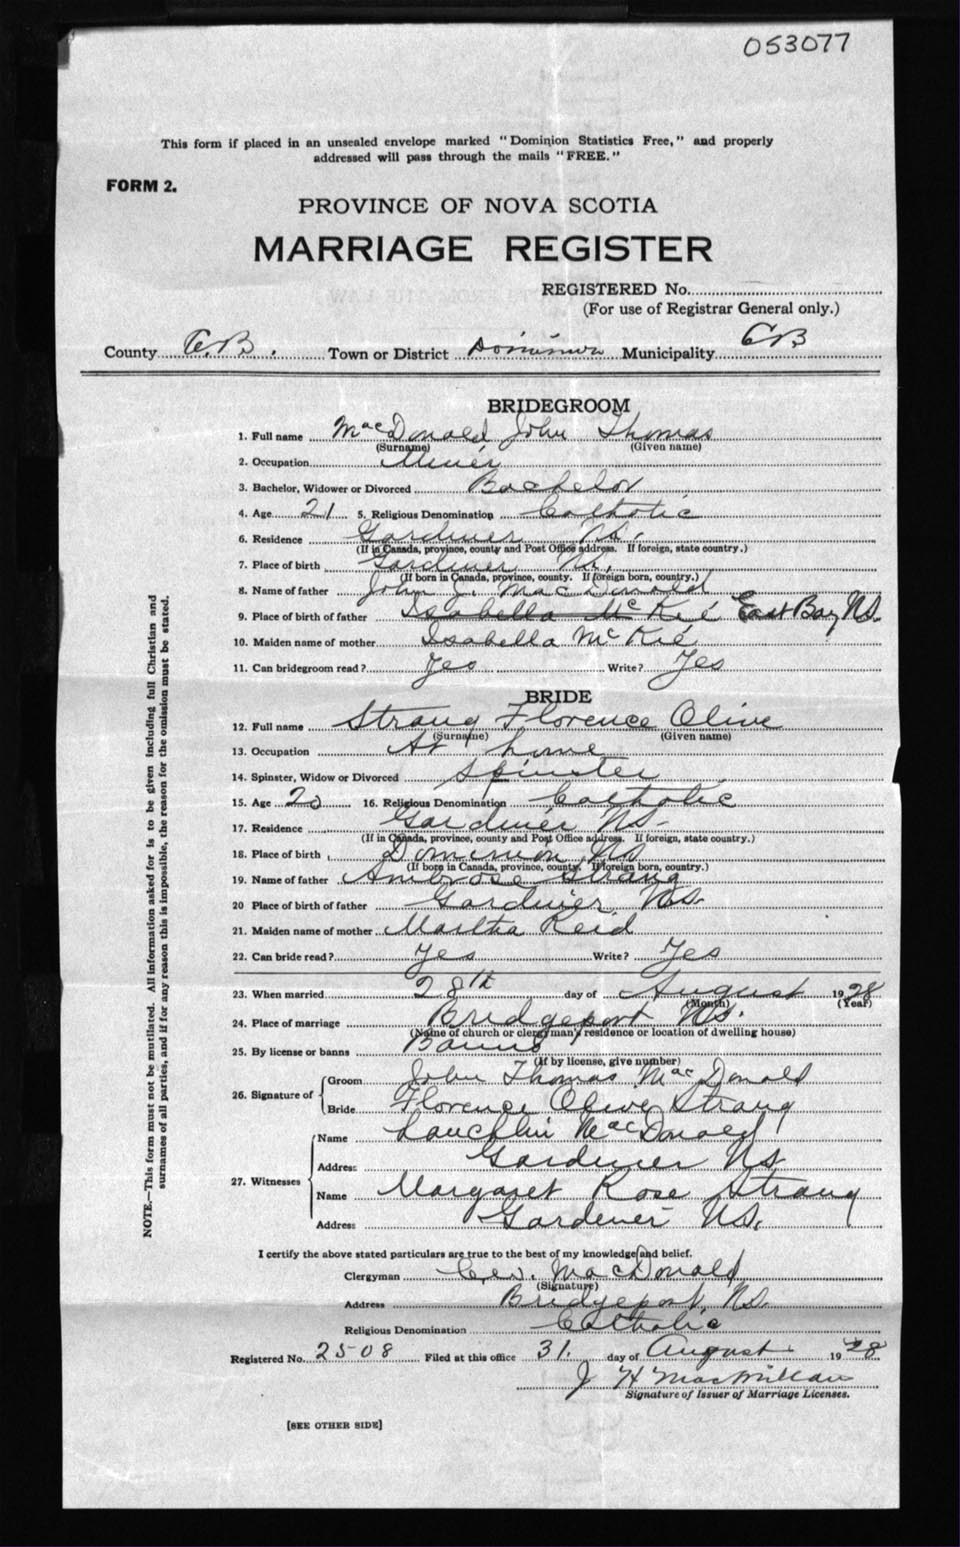 053077
This form if placed in an unsealed envelope marked "Dominion Statistics Free," and properly
addressed will pass through the mails "FREE."
FORM 2.
PROVINCE OF NOVA SCOTIA
MARRIAGE REGISTER
REGISTERED No.
(For use of Registrar General only.)
County C.B. Town or District Dominion Municipality CB
BRIDEGROOM
1. Full name MacDonald John Thomas
(Surname) (Given name)
2. Occupation Miner
3. Bachelor, Widower or Divorced Bachelor
4. Age 21 5. Religious Denomination Catholic
6. Residence Gardiner NS.
(If in Canada, province, county and Post Office address. If foreign, state country.)
7. Place of birth Gardiner NS.
(If born in Canada, province, county. If foreign born, country.)
8. Name of father John J. MacDonald
9. Place of birth of father Isabella McKie East Bay NS.
10. Maiden name of mother Isabella McKie
11. Can bridegroom read? Yes Write? Yes
BRIDE
12. Full name Strang Florence Olive
(Surname) (Given name)
13. Occupation At home
14. Spinster, Widow or Divorced Spinster
15. Age 20 16. Religious Denomination Catholic
17. Residence Gardiner NS.
(If in Canada, province, county and Post Office address. If foreign, state country.)
18. Place of birth Dominion NS
(If born in Canada, province, county. If foreign born, country.)
19. Name of father Ambrose Strang
20 Place of birth of father Gardiner NS.
21. Maiden name of mother Martha Reid
22. Can bride read? Yes Write? Yes
23. When married 28th day of August 1928
(Month) (Year)
24. Place of marriage Bridgeport NS.
(Name of church or clergyman's residence or location of dwelling house)
25. By license or banns Banns
(If by license, give number)
26. Signature of Groom John Thomas MacDonald
Bride Florence Olive Strang
27. Witnesses Name Lauchlin MacDonald
Address Gardiner NS
Name Margaret Rose Strang
Address Gardener NS.
I certify the above stated particulars are true to the best of my knowledge and belief.
Clergyman MacDonald
(Signature)
Address Bridgeport, NS.
Religious Denomination Catholic
Registered No. 2508 Filed at this office 31. day of August 1928
J H MacMillan
Signature of Issuer of Marriage Licenses.
[SEE OTHER SIDE]
NOTE.—This form must not be mutilated. All information asked for is to be given including full Christian and
surnames of all parties, and if for any reason this is impossible, the reason for the omission must be stated.